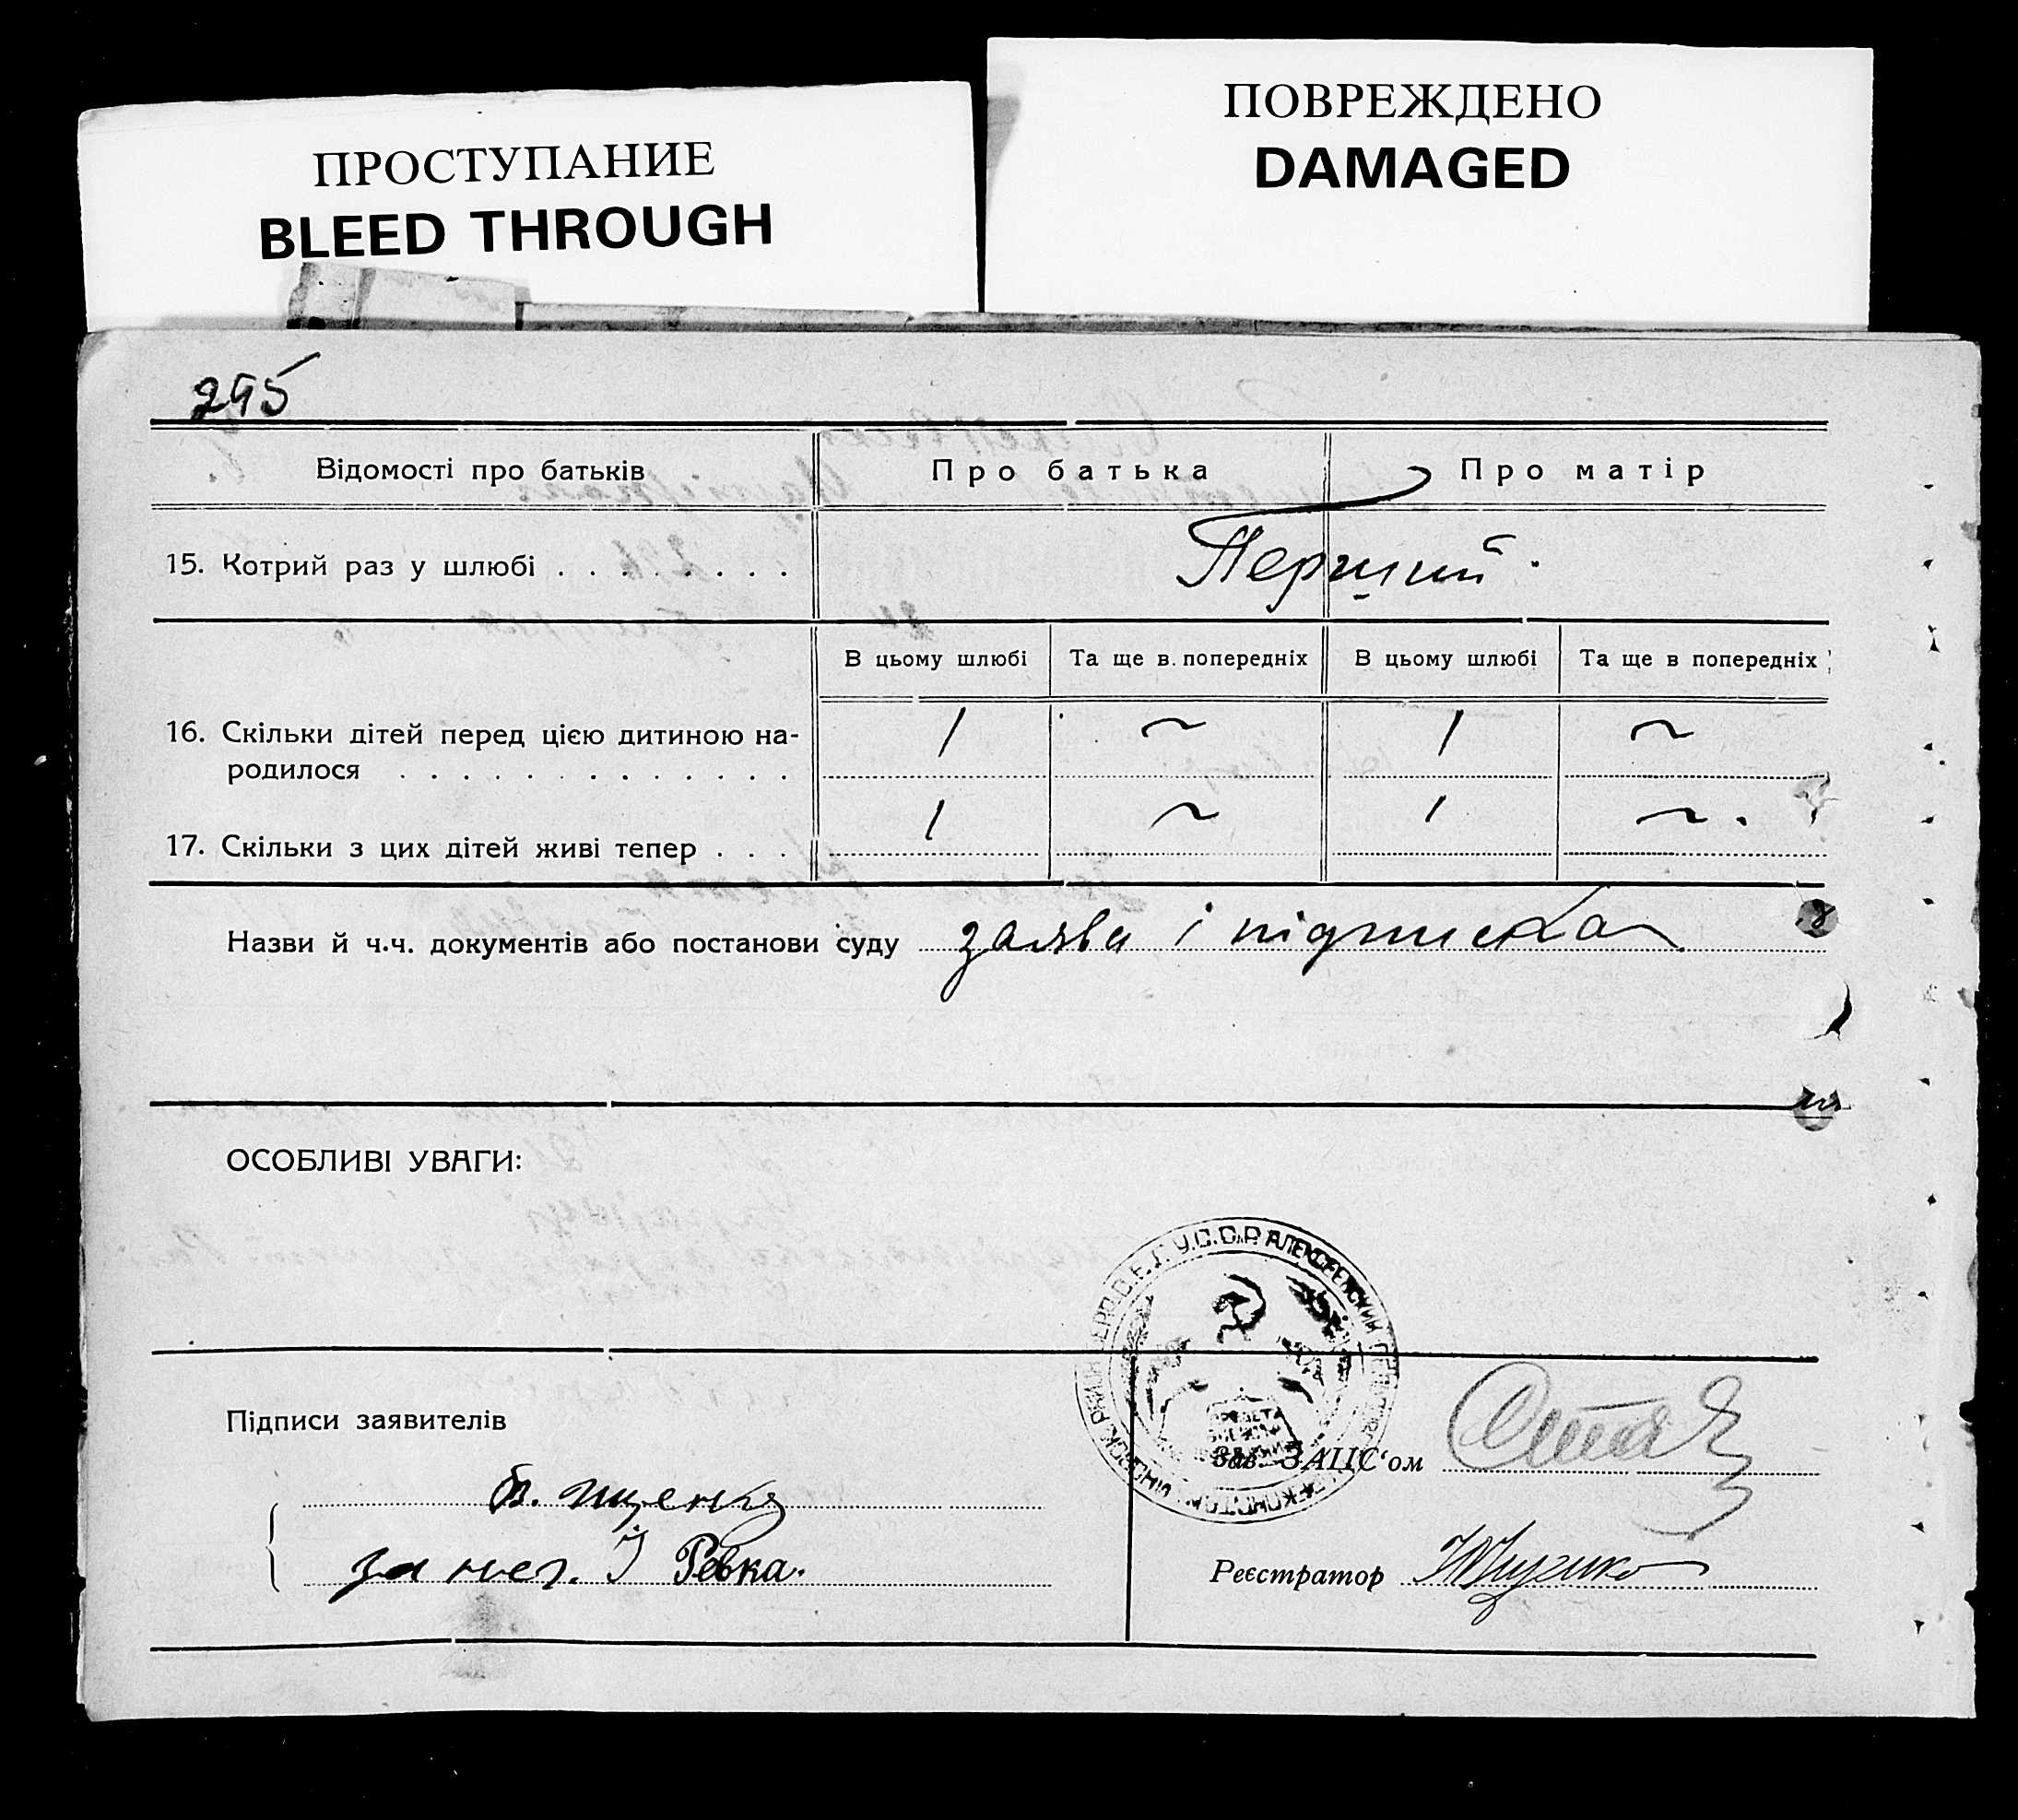 ПРОСТУПАНИЕ
BLEED THROUGH
ПОВРЕЖДЕНО
DAMAGED
295
Відомості про батьків
Про батька
Про матір
15. Котрий раз у шлюбі . . . . . . . .
Перший.
В цьому шлюбі
Та ще в попередніх
В цьому шлюбі
Та ще в попередніх
16. Скільки дітей перед цією дитиною на-
родилося . . . . . . . . . . . . . .
1 ~ 1 ~
17. Скільки з цих дітей живі тепер . . .
1 ~ 1 ~
Назви й ч.ч. документів або постанови суду заява і підписка
ОСОБЛИВІ УВАГИ:
У.С.С.Р. АЛЕКСЕЕВСКИЙ
Підписи заявителів
Зав. ЗАЦС‘ом
за нег. І Ревка.
Реєстратор